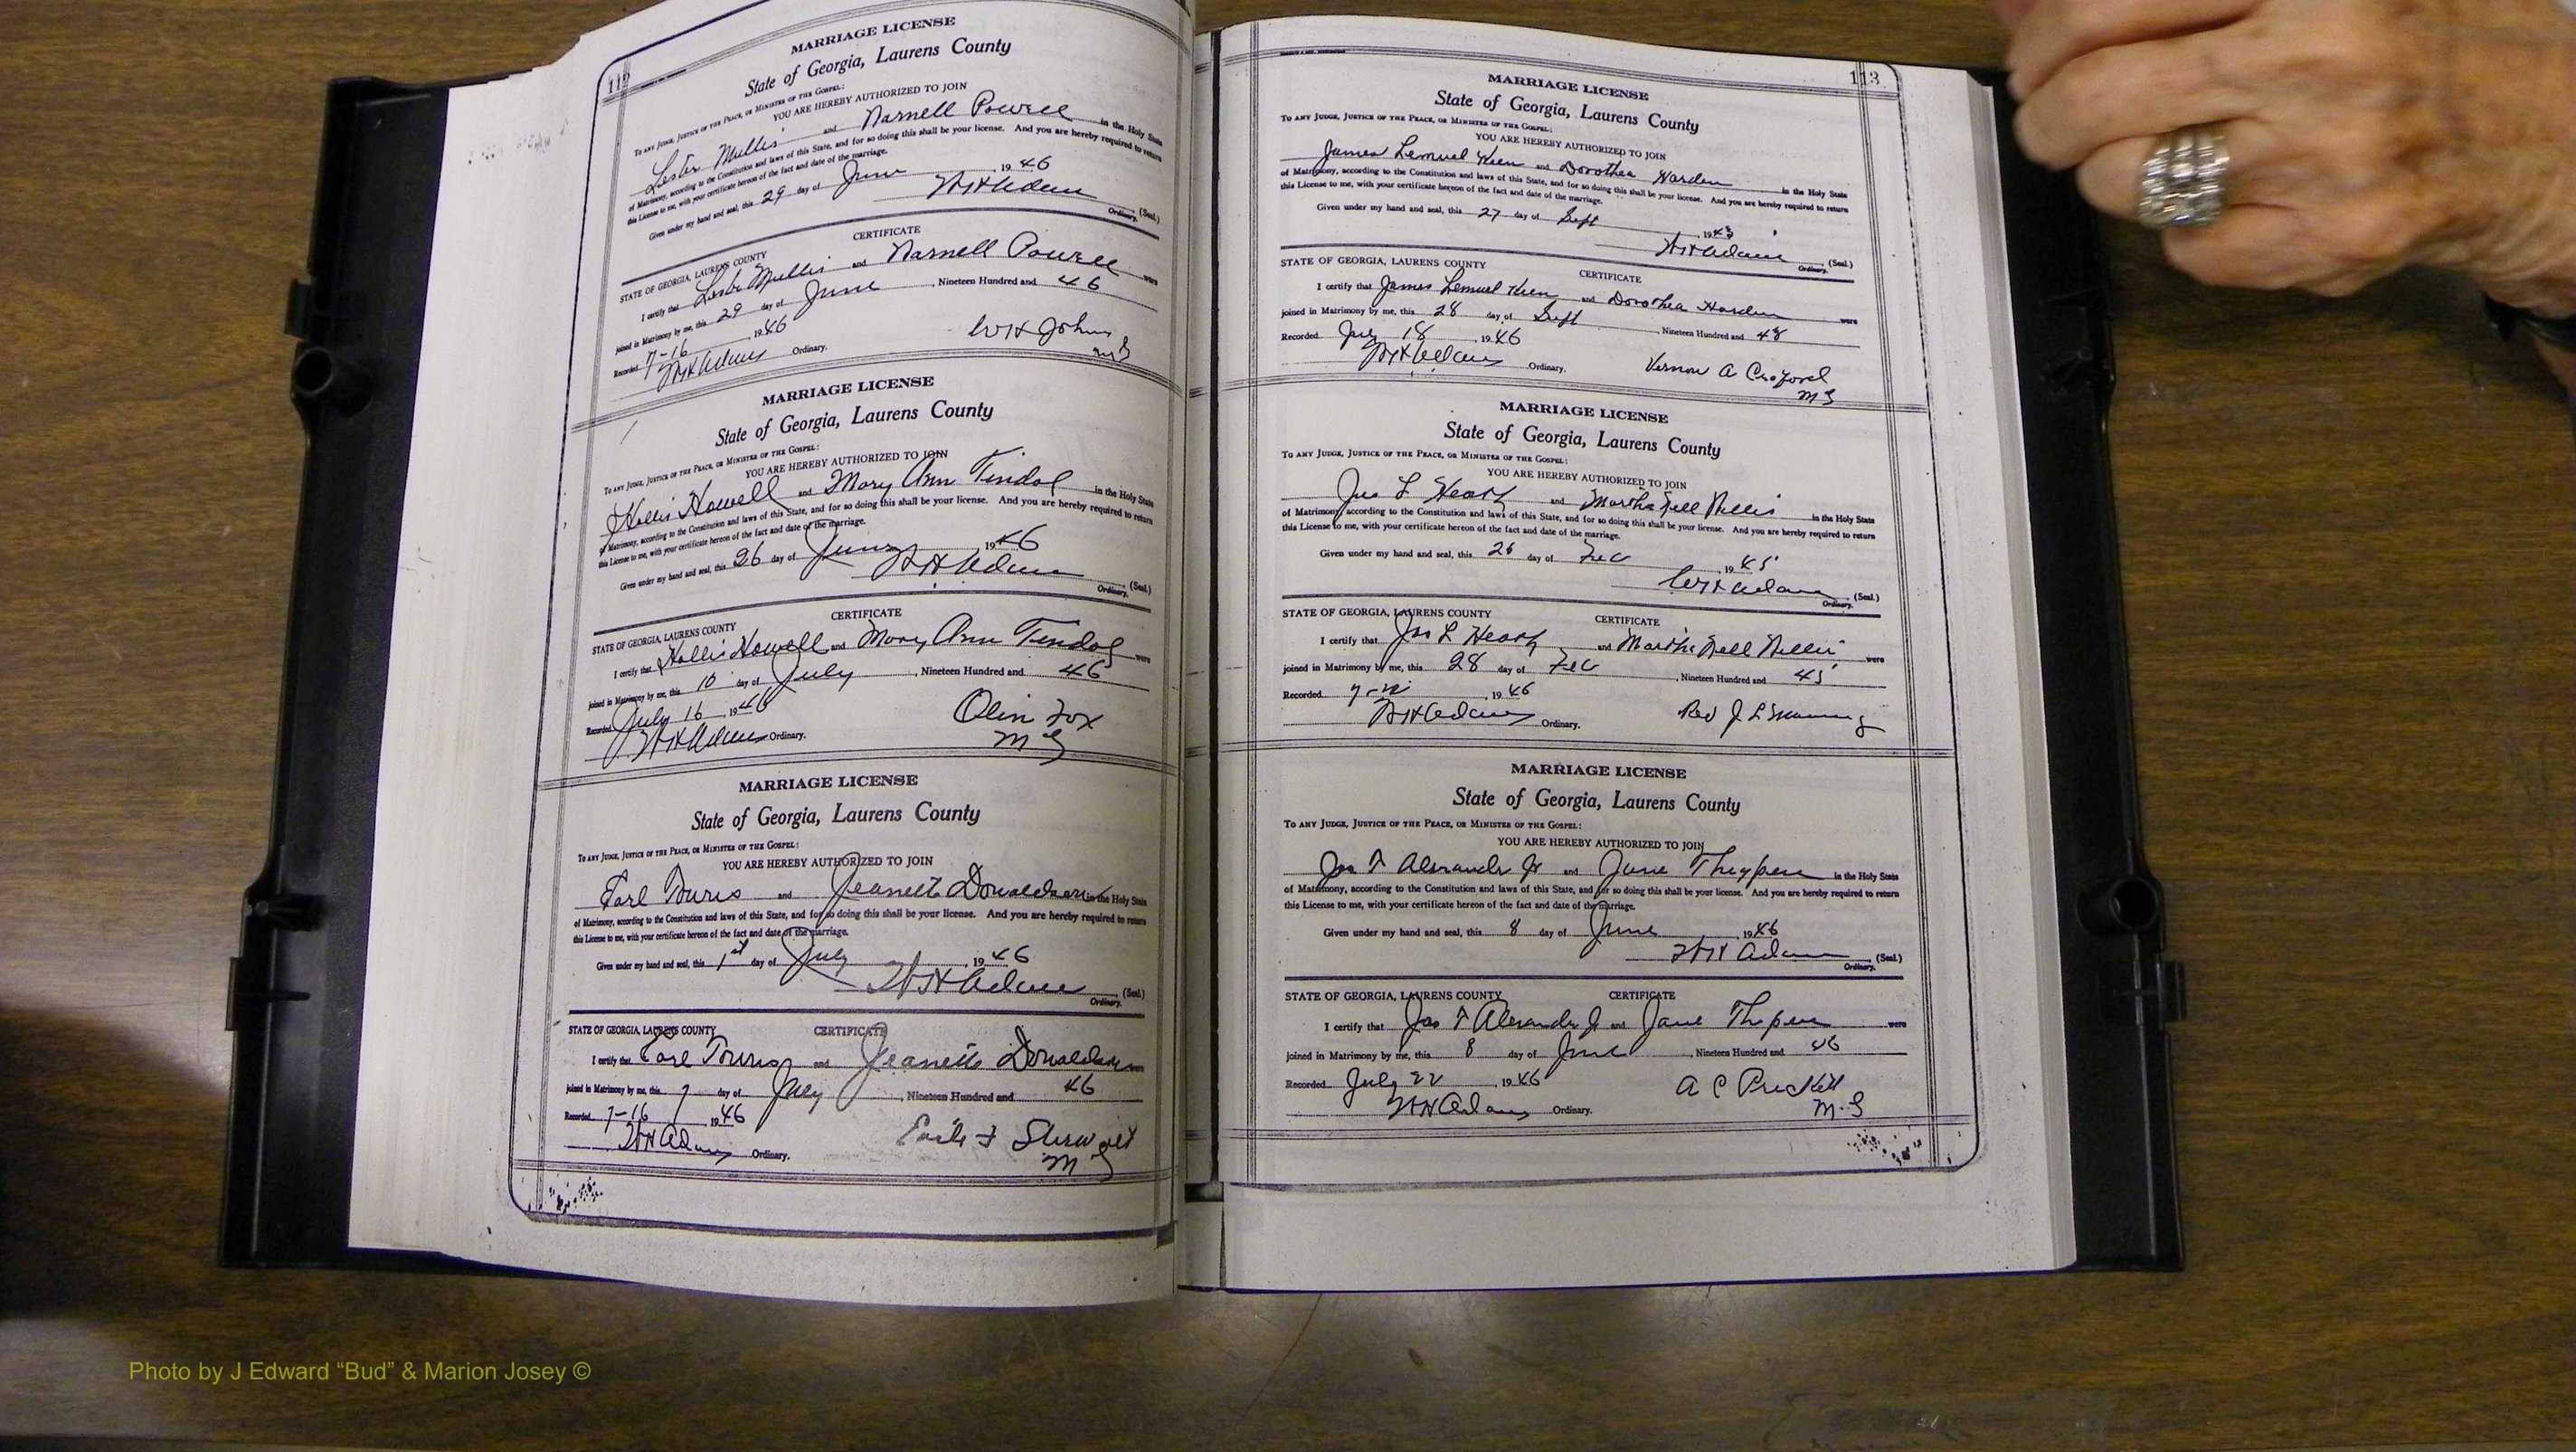 112
MARRIAGE LICENSE
State of Georgia, Laurens County
To any Judge, Justice of the Peace, or Minister of the Gospel:
YOU ARE HEREBY AUTHORIZED TO JOIN
Lester Mullis and Narnell Powell in the Holy State
of Matrimony, according to the Constitution and laws of this State, and for so doing this shall be your license. And you are hereby required to return
this License to me, with your certificate hereon of the fact and date of the marriage.
Given under my hand and seal, this 29 day of June 1946
W H Adams (Seal.)
Ordinary.
CERTIFICATE
STATE OF GEORGIA, LAURENS COUNTY
I certify that Lester Mullis and Narnell Powell were
joined in Matrimony by me, this 29 day of June, Nineteen Hundred and 46
Recorded 7-16 1946
W H Adams Ordinary.
W H Johns
M G
MARRIAGE LICENSE
State of Georgia, Laurens County
To any Judge, Justice of the Peace, or Minister of the Gospel:
YOU ARE HEREBY AUTHORIZED TO JOIN
Hollis Howell and Mary Ann Tindol in the Holy State
of Matrimony, according to the Constitution and laws of this State, and for so doing this shall be your license. And you are hereby required to return
this License to me, with your certificate hereon of the fact and date of the marriage.
Given under my hand and seal, this 26 day of June 1946
W H Adams (Seal.)
Ordinary.
CERTIFICATE
STATE OF GEORGIA, LAURENS COUNTY
I certify that Hollis Howell and Mary Ann Tindol were
joined in Matrimony by me, this 10 day of July, Nineteen Hundred and 46
Recorded July 16, 1946
W H Adams Ordinary.
Olin Fox
M G
MARRIAGE LICENSE
State of Georgia, Laurens County
To any Judge, Justice of the Peace, or Minister of the Gospel:
YOU ARE HEREBY AUTHORIZED TO JOIN
Earl and Jeanette Donaldson in the Holy State
of Matrimony, according to the Constitution and laws of this State, and for so doing this shall be your license. And you are hereby required to return
this License to me, with your certificate hereon of the fact and date of the marriage.
Given under my hand and seal, this 1st day of July, 1946
W H Adams (Seal.)
Ordinary.
STATE OF GEORGIA, LAURENS COUNTY CERTIFICATE
I certify that Earl and Jeanette Donaldson were
joined in Matrimony by me, this 7 day of July, Nineteen Hundred and 46
Recorded 7-16, 1946
W H Adams Ordinary.
Stewart
M G
113
MARRIAGE LICENSE
State of Georgia, Laurens County
To any Judge, Justice of the Peace, or Minister of the Gospel:
YOU ARE HEREBY AUTHORIZED TO JOIN
James Lemuel Keen and Dorothea Harden in the Holy State
of Matrimony, according to the Constitution and laws of this State, and for so doing this shall be your license. And you are hereby required to return
this License to me, with your certificate hereon of the fact and date of the marriage.
Given under my hand and seal, this 27 day of Sept, 1943
W H Adams (Seal.)
Ordinary.
STATE OF GEORGIA, LAURENS COUNTY CERTIFICATE
I certify that James Lemuel Keen and Dorothea Harden were
joined in Matrimony by me, this 28 day of Sept, Nineteen Hundred and
Recorded July 18, 1946
W H Adams Ordinary.
Vernon A
M G
MARRIAGE LICENSE
State of Georgia, Laurens County
To any Judge, Justice of the Peace, or Minister of the Gospel:
YOU ARE HEREBY AUTHORIZED TO JOIN
Jas L Heath and Martha Nell in the Holy State
of Matrimony, according to the Constitution and laws of this State, and for so doing this shall be your license. And you are hereby required to return
this License to me, with your certificate hereon of the fact and date of the marriage.
Given under my hand and seal, this 26 day of, 1945
W H Adams (Seal.)
Ordinary.
STATE OF GEORGIA, LAURENS COUNTY CERTIFICATE
I certify that Jas L Heath and Martha Nell were
joined in Matrimony by me, this 28 day of, Nineteen Hundred and 45
Recorded, 1946
W H Adams Ordinary.
Rev J L Manning
MARRIAGE LICENSE
State of Georgia, Laurens County
To any Judge, Justice of the Peace, or Minister of the Gospel:
YOU ARE HEREBY AUTHORIZED TO JOIN
Jas T Alexander Jr and Jane in the Holy State
of Matrimony, according to the Constitution and laws of this State, and for so doing this shall be your license. And you are hereby required to return
this License to me, with your certificate hereon of the fact and date of the marriage.
Given under my hand and seal, this 8 day of June, 1946
W H Adams (Seal.)
Ordinary.
STATE OF GEORGIA, LAURENS COUNTY CERTIFICATE
I certify that Jas T Alexander Jr and Jane were
joined in Matrimony by me, this 8 day of June, Nineteen Hundred and 46
Recorded July 22, 1946
W H Adams Ordinary.
A C
M.G
Photo by J Edward “Bud” & Marion Josey ©